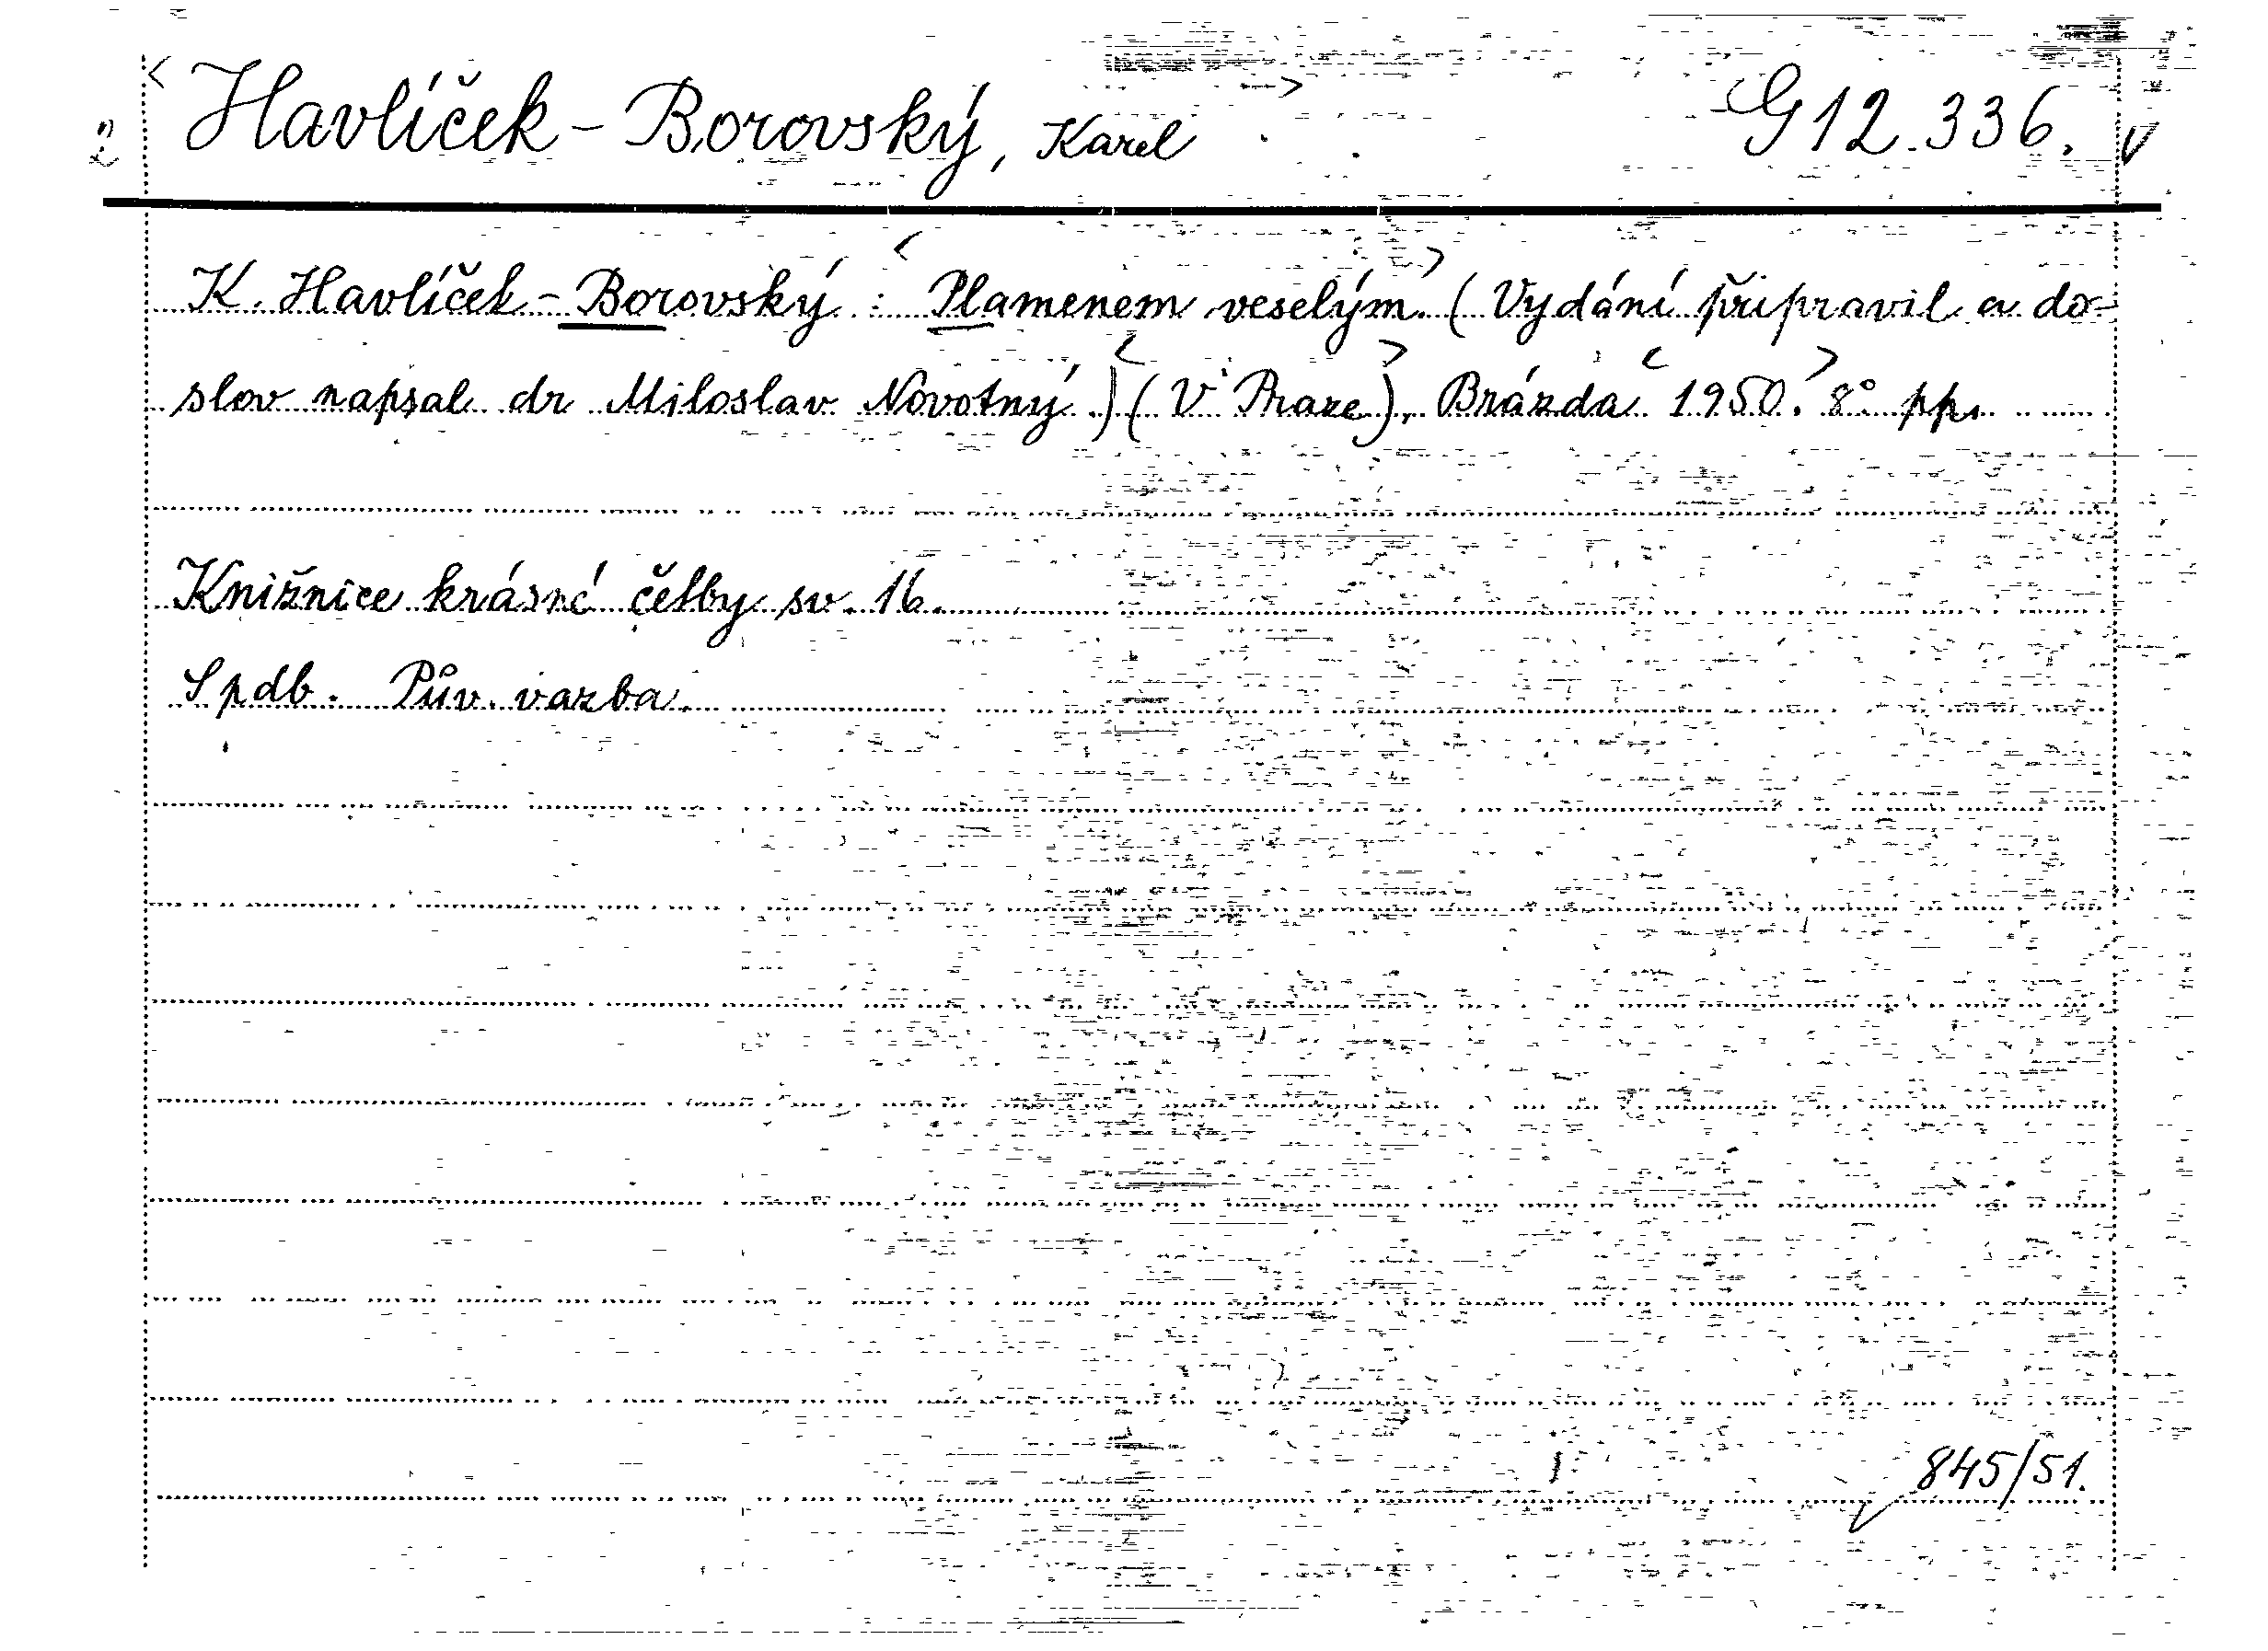 Havlíček-Borovský, Karel G 12.336.
2
K. Havlíček-Borovský: Plamenem veselým. (Vydání připravil a do-
slov napsal dr Miloslav Novotný.) (V Praze), Brázda 1950. 8° pp.
Knižnice krásné četby sv. 16.
S pdb. Pův. vazba.
845/51.